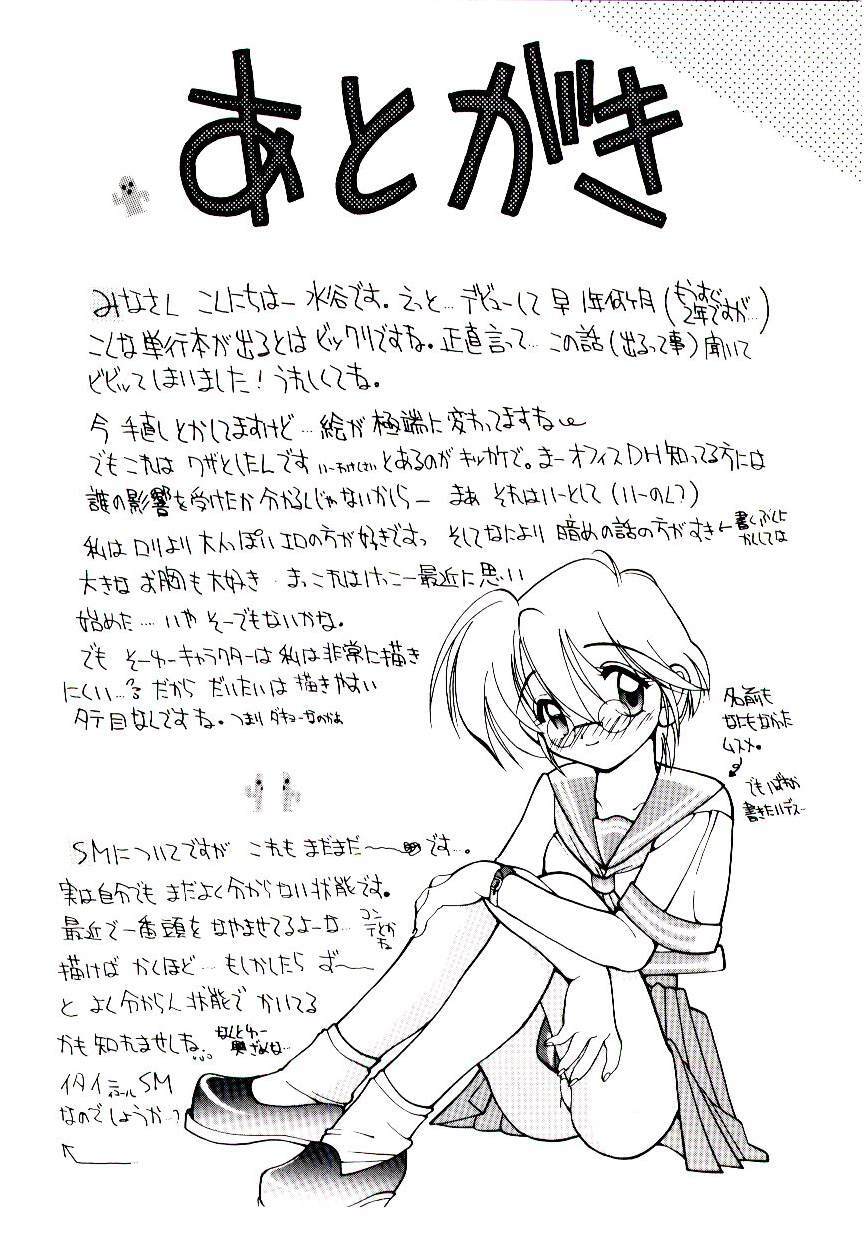 あとがき
みなさん こんにちはー 水谷です。えっと… デビューして 早 1年何ヶ月(もうすぐ2年ですが…)
こんな単行本が出るとは ビックリですね。正直言って… この話(出るって事)聞いて
ビビってしまいました! うれしくてね。
今 手直しとかしてますけど… 絵が 極端に変わってますね
でもこれは ワザとしたんです とあるのが キッカケで。まー オフィスDH知ってる方には
誰の影響を受けたか分かるんじゃないかしらー まぁ それはいーとして(いーのん?)
私は ロリより 大人っぽい エロの方が好きですっ そしてなにより 暗めの話の方がすき
大きな お胸も大好き まっこれはけっこー最近に思い
始めた… いや そーでもないかな。
でも そーゆーキャラクターは 私は非常に描き
にくい…? だから だいたいは 描きやすい
タテ目なんですね。つまり
名前も
なにもなかった
ムスメ。
書きたいデスー
SMについてですが これも まだまだ〜 です…。
実は自分でも まだよく分からない状態です。
最近で一番頭を なやませてるよーな… コンテとかね
描けば かくほど… もしかしたら ず〜
と よく分からん状態で かいてる
かも知れませんね…
イタイ SM
なのでしょうか…?